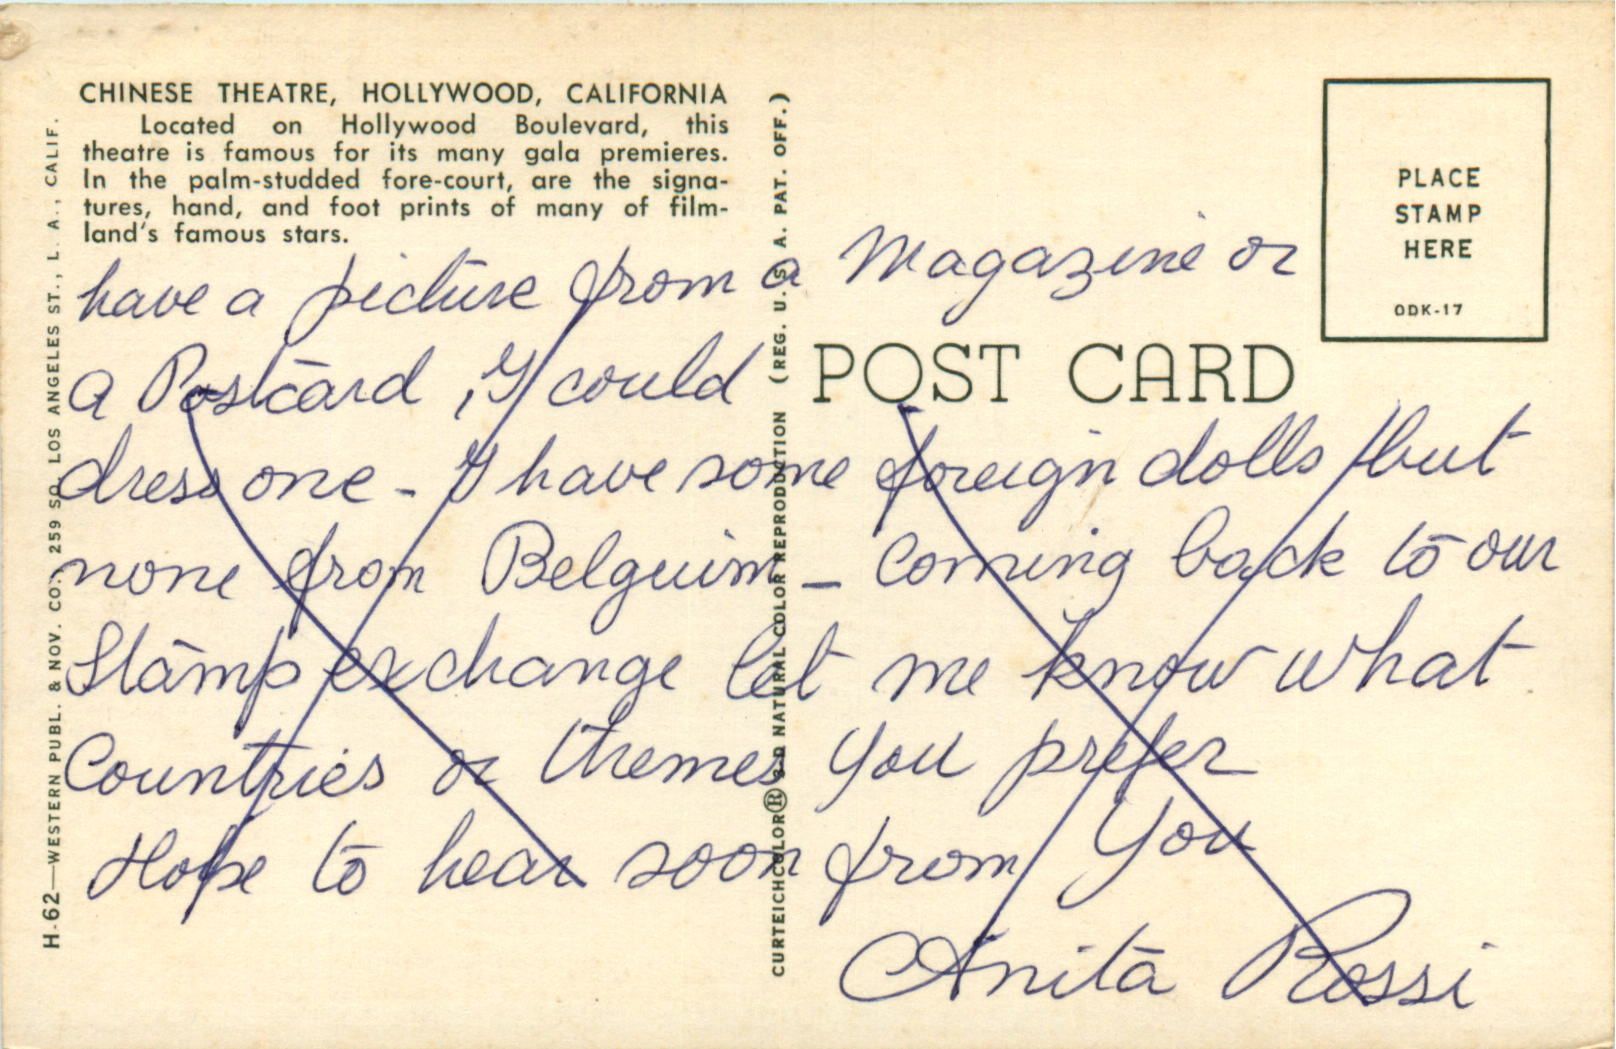 CHINESE THEATRE, HOLLYWOOD, CALIFORNIA
Located on Hollywood Boulevard, this
theatre is famous for its many gala premieres.
In the palm-studded fore-court, are the signa-
tures, hand, and foot prints of many of film-
land's famous stars.
PLACE
STAMP
HERE
ODK-17
POST CARD
H-62—WESTERN PUBL. & NOV. CO., 259 SO. LOS ANGELES ST., L. A., CALIF.
CURTEICHCOLOR® 3-D NATURAL COLOR REPRODUCTION (REG. U. S. A. PAT. OFF.)
have a picture from a Magazine or
a Postcard, I could
dress one - I have some foreign dolls but
none from Belguim - Coming back to our
Stamp exchange let me know what
Countries or themes you prefer
Hope to hear soon from you
Anita Rossi